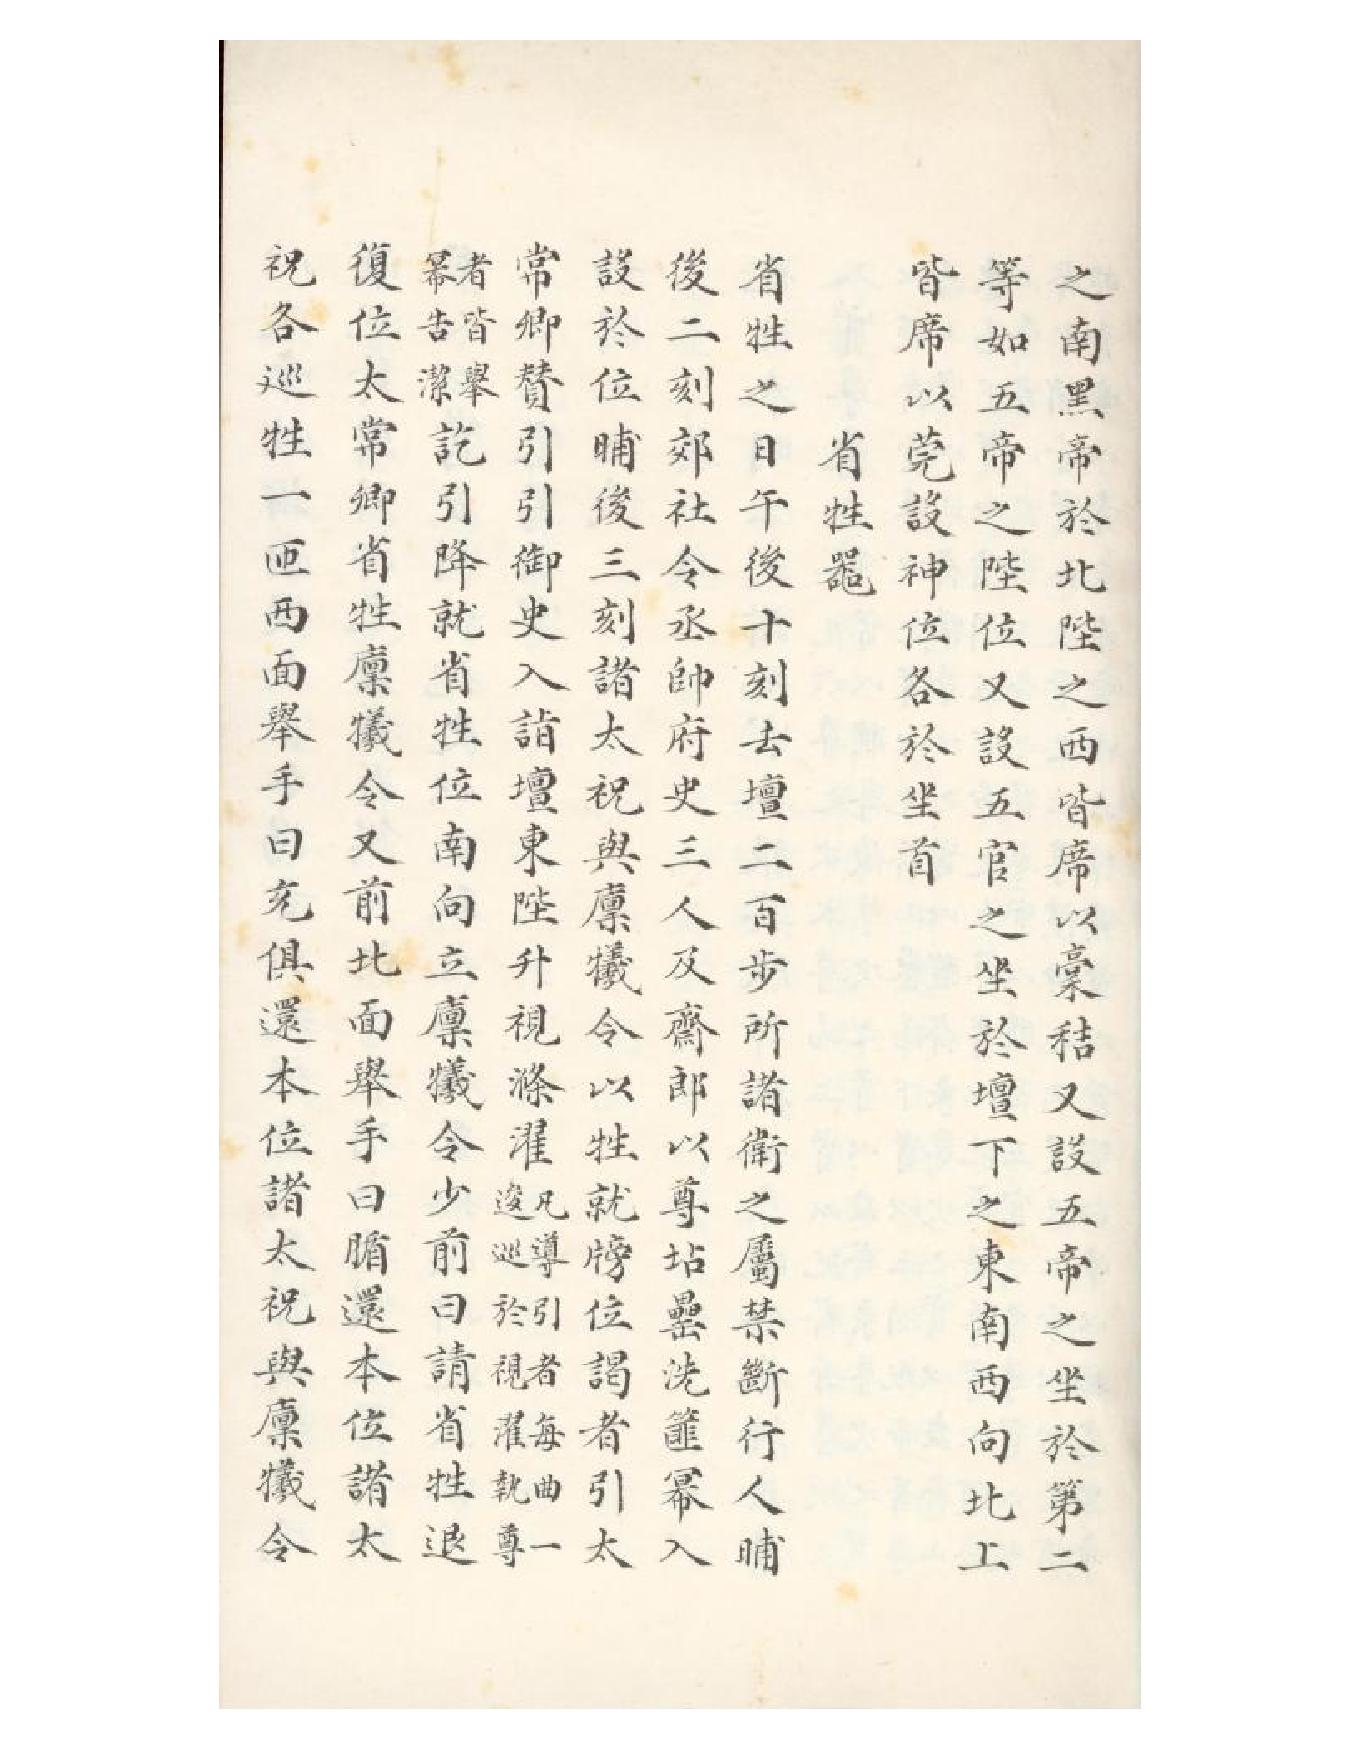 之南黑帝於北陛之西皆席以槀秸又設五帝之坐於第二
等如五帝之陛位又設五官之坐於壇下之東南西向北上
皆席以莞設神位各於坐首
省牲器
省牲之日午後十刻去壇二百步所諸衛之屬禁斷行人晡
後二刻郊社令丞帥府史三人及齋郎以尊坫罍洗篚冪入
設於位晡後三刻諸太祝與廩犧令以牲就牓位謁者引太
常卿贊引引御史入詣壇東陛升視滌濯凡導引者每曲一逡巡於視濯執尊
者皆舉冪告潔訖引降就省牲位南向立廩犧令少前曰請省牲退
復位太常卿省牲廩犧令又前北面舉手曰腯還本位諸太
祝各巡牲一匝西面舉手曰充俱還本位諸太祝與廩犧令